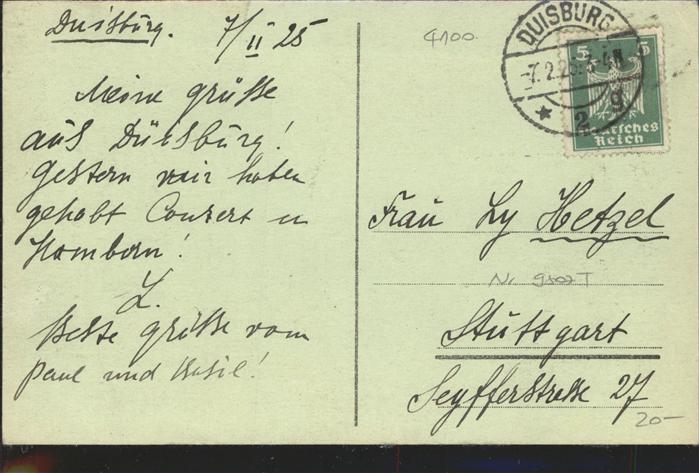 Duisburg. 7/II 25
Meine grüsse
aus Düisbürg!
Gestern wir haben
gehabt Conzert in
Hamborn!
L.
Beste grüsse vom
Paul und Basil!
4100.
DUISBURG
-7.2.25.
* 2 g
5 5
Deutsches
Reich
Frau Ly Hetzel
Stüttgart
Seyfferstrasse 27
20-